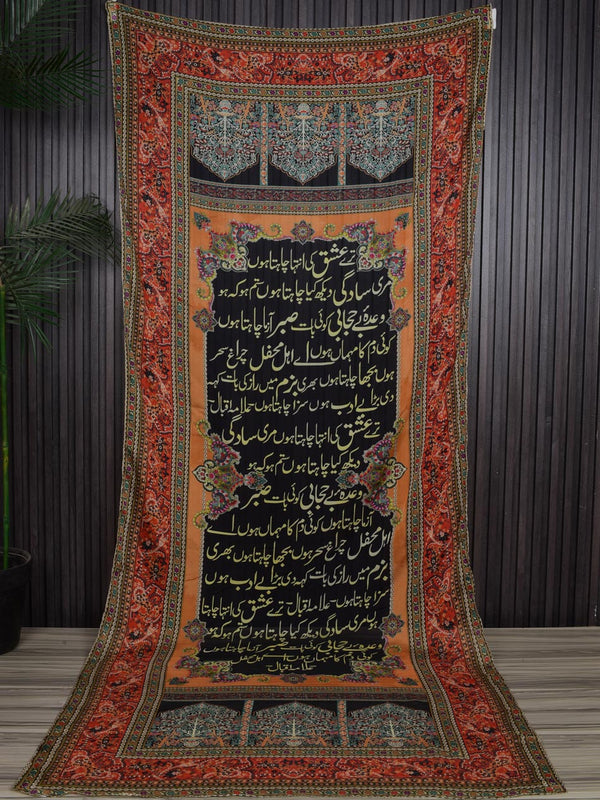 ترے عشق کی انتہا چاہتا ہوں
مری سادگی دیکھ کیا چاہتا ہوں ستم ہو کہ ہو
وعدہ بے حجابی کوئی بات صبر آزما چاہتا ہوں
کوئی دم کا مہماں ہوں اے اہل محفل چراغ سحر
ہوں بجھا چاہتا ہوں بھری بزم میں راز کی بات کہہ
دی بڑا بے ادب ہوں سزا چاہتا ہوں۔ علامہ اقبال
ترے عشق کی انتہا چاہتا ہوں مری سادگی
دیکھ کیا چاہتا ہوں ستم ہو کہ ہو
وعدہ بے حجابی کوئی بات صبر
آزما چاہتا ہوں کوئی دم کا مہماں ہوں اے
اہل محفل چراغ سحر ہوں بجھا چاہتا ہوں بھری
بزم میں راز کی بات کہہ دی بڑا بے ادب ہوں
سزا چاہتا ہوں۔ علامہ اقبال۔ ترے عشق کی انتہا چاہتا
ہوں مری سادگی دیکھ کیا چاہتا ہوں ستم ہو کہ ہو
وعدہ بے حجابی کوئی بات صبر آزما چاہتا ہوں
کوئی دم کا مہماں ہوں اے اہل محفل
علامہ اقبال